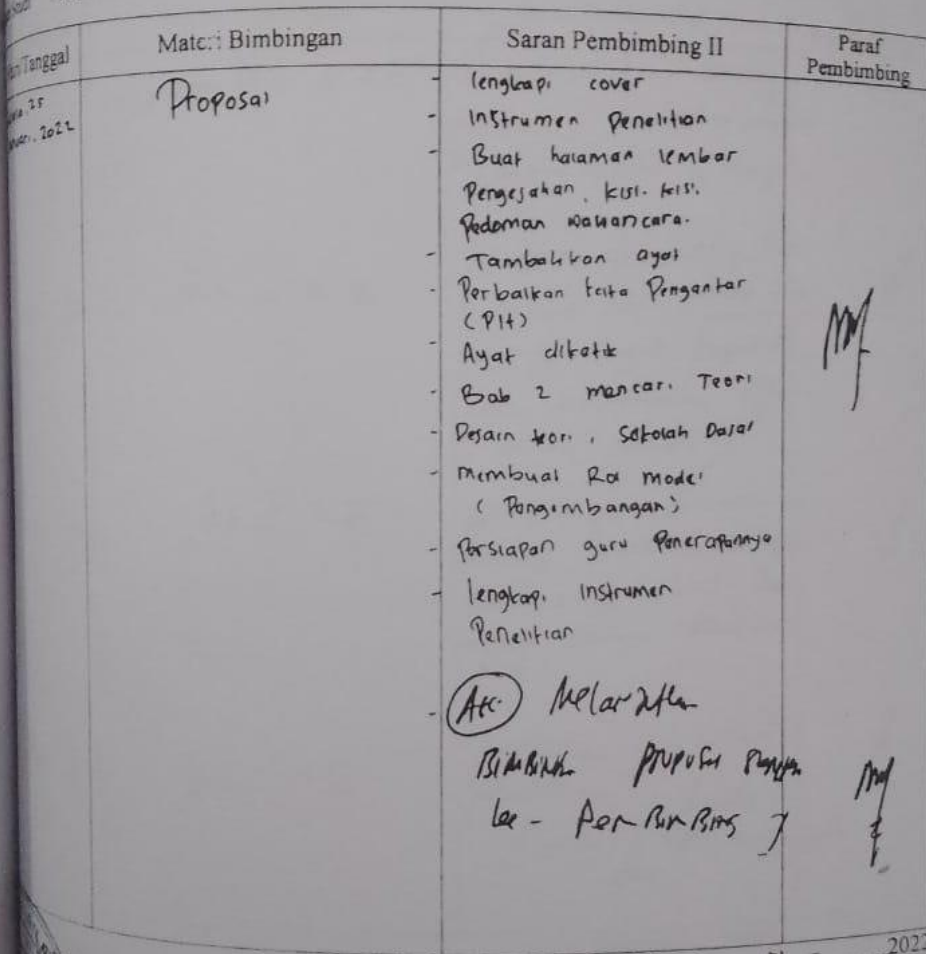 Tanggal
Materi Bimbingan
Saran Pembimbing II
Paraf
Pembimbing
25
2022
Proposal
- lengkapi cover
- Instrumen Penelition
- Buat halaman lembar
Pengesahan, kisi-kisi.
Pedoman wawancara.
- Tambahkan ayat
- Perbaikan kata Pengantar
(Plt)
- Ayat diketik
- Bab 2 mencari Teori
- Desain teori, Sekolah Dasar
- Membuat model
(Pengembangan)
- Persiapan guru Penerapannya
- lengkapi Instrumen
Penelitian
- Acc. Melanjutkan
Bimbingan proposal
ke - Pembimbing I
2022